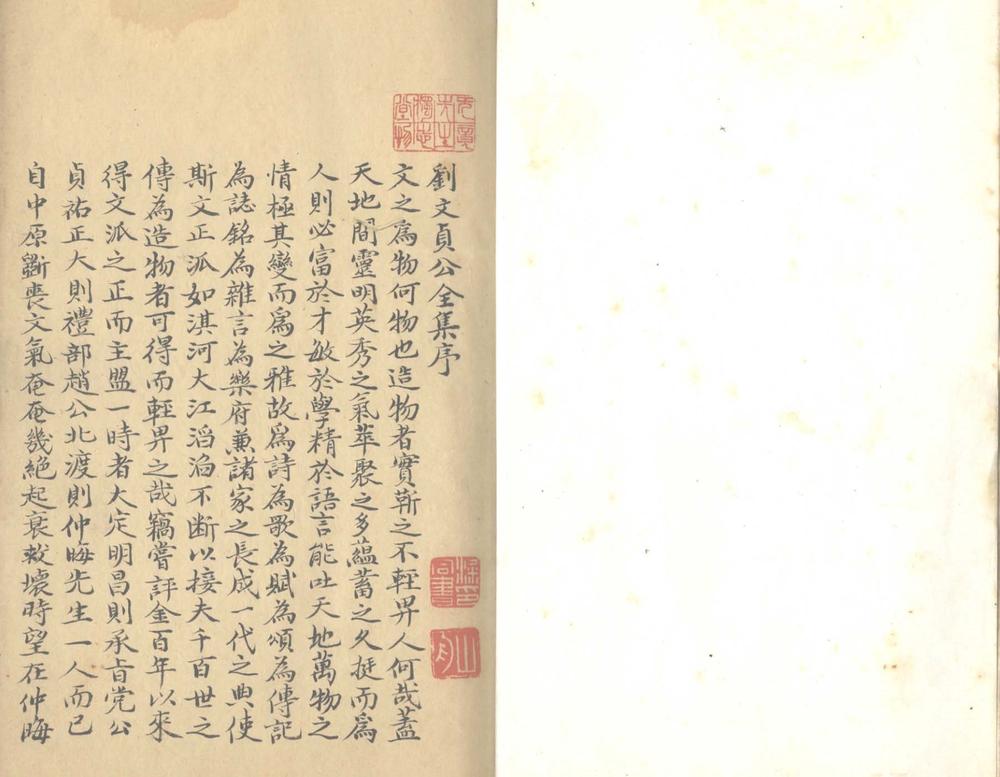 劉文貞公全集序
文之爲物何物也造物者實靳之不輕畀人何哉蓋
天地間靈明英秀之氣萃聚之多蘊蓄之久挺而爲
人則必富於才敏於學精於語言能吐天地萬物之
情極其變而爲之雅故爲詩為歌為賦為頌為傳記
為誌銘為雜言為樂府兼諸家之長成一代之典使
斯文正派如淇河大江滔滔不断以接夫千百世之
傳為造物者可得而輕畀之哉竊嘗評金百年以來
得文派之正而主盟一時者大定明昌則承旨党公
貞祐正大則禮部趙公北渡則仲晦先生一人而已
自中原斲喪文氣奄奄幾絕起衰救壞時望在仲晦